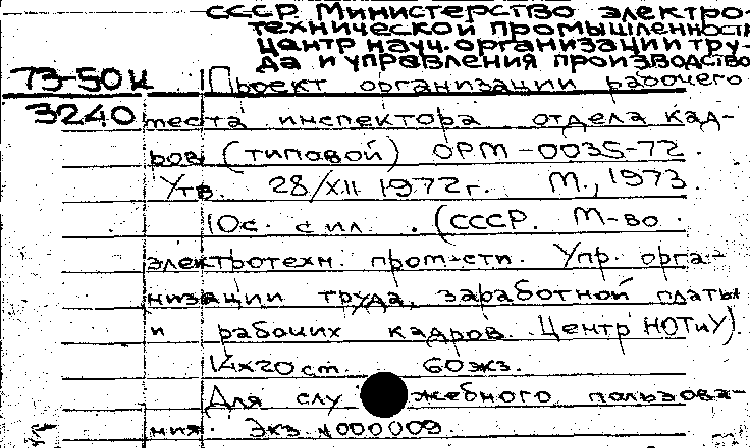 СССР. Министерство электро-
технической промышленности
Центр науч. организации тру-
да и управления производство
73-50к Проект организации рабочего
3240 места инспектора отдела кад-
ров (типовой) ОРМ-0035-72.
Утв. 28/XII 1972г. М., 1973.
10с. с ил. (СССР. М-во
электротехн. пром-сти. Упр. орга-
низации труда, заработной платы
и рабочих кадров. Центр НОТиУ).
14х20 см. 60 экз.
Для служебного пользова-
ния. Экз. №000009.